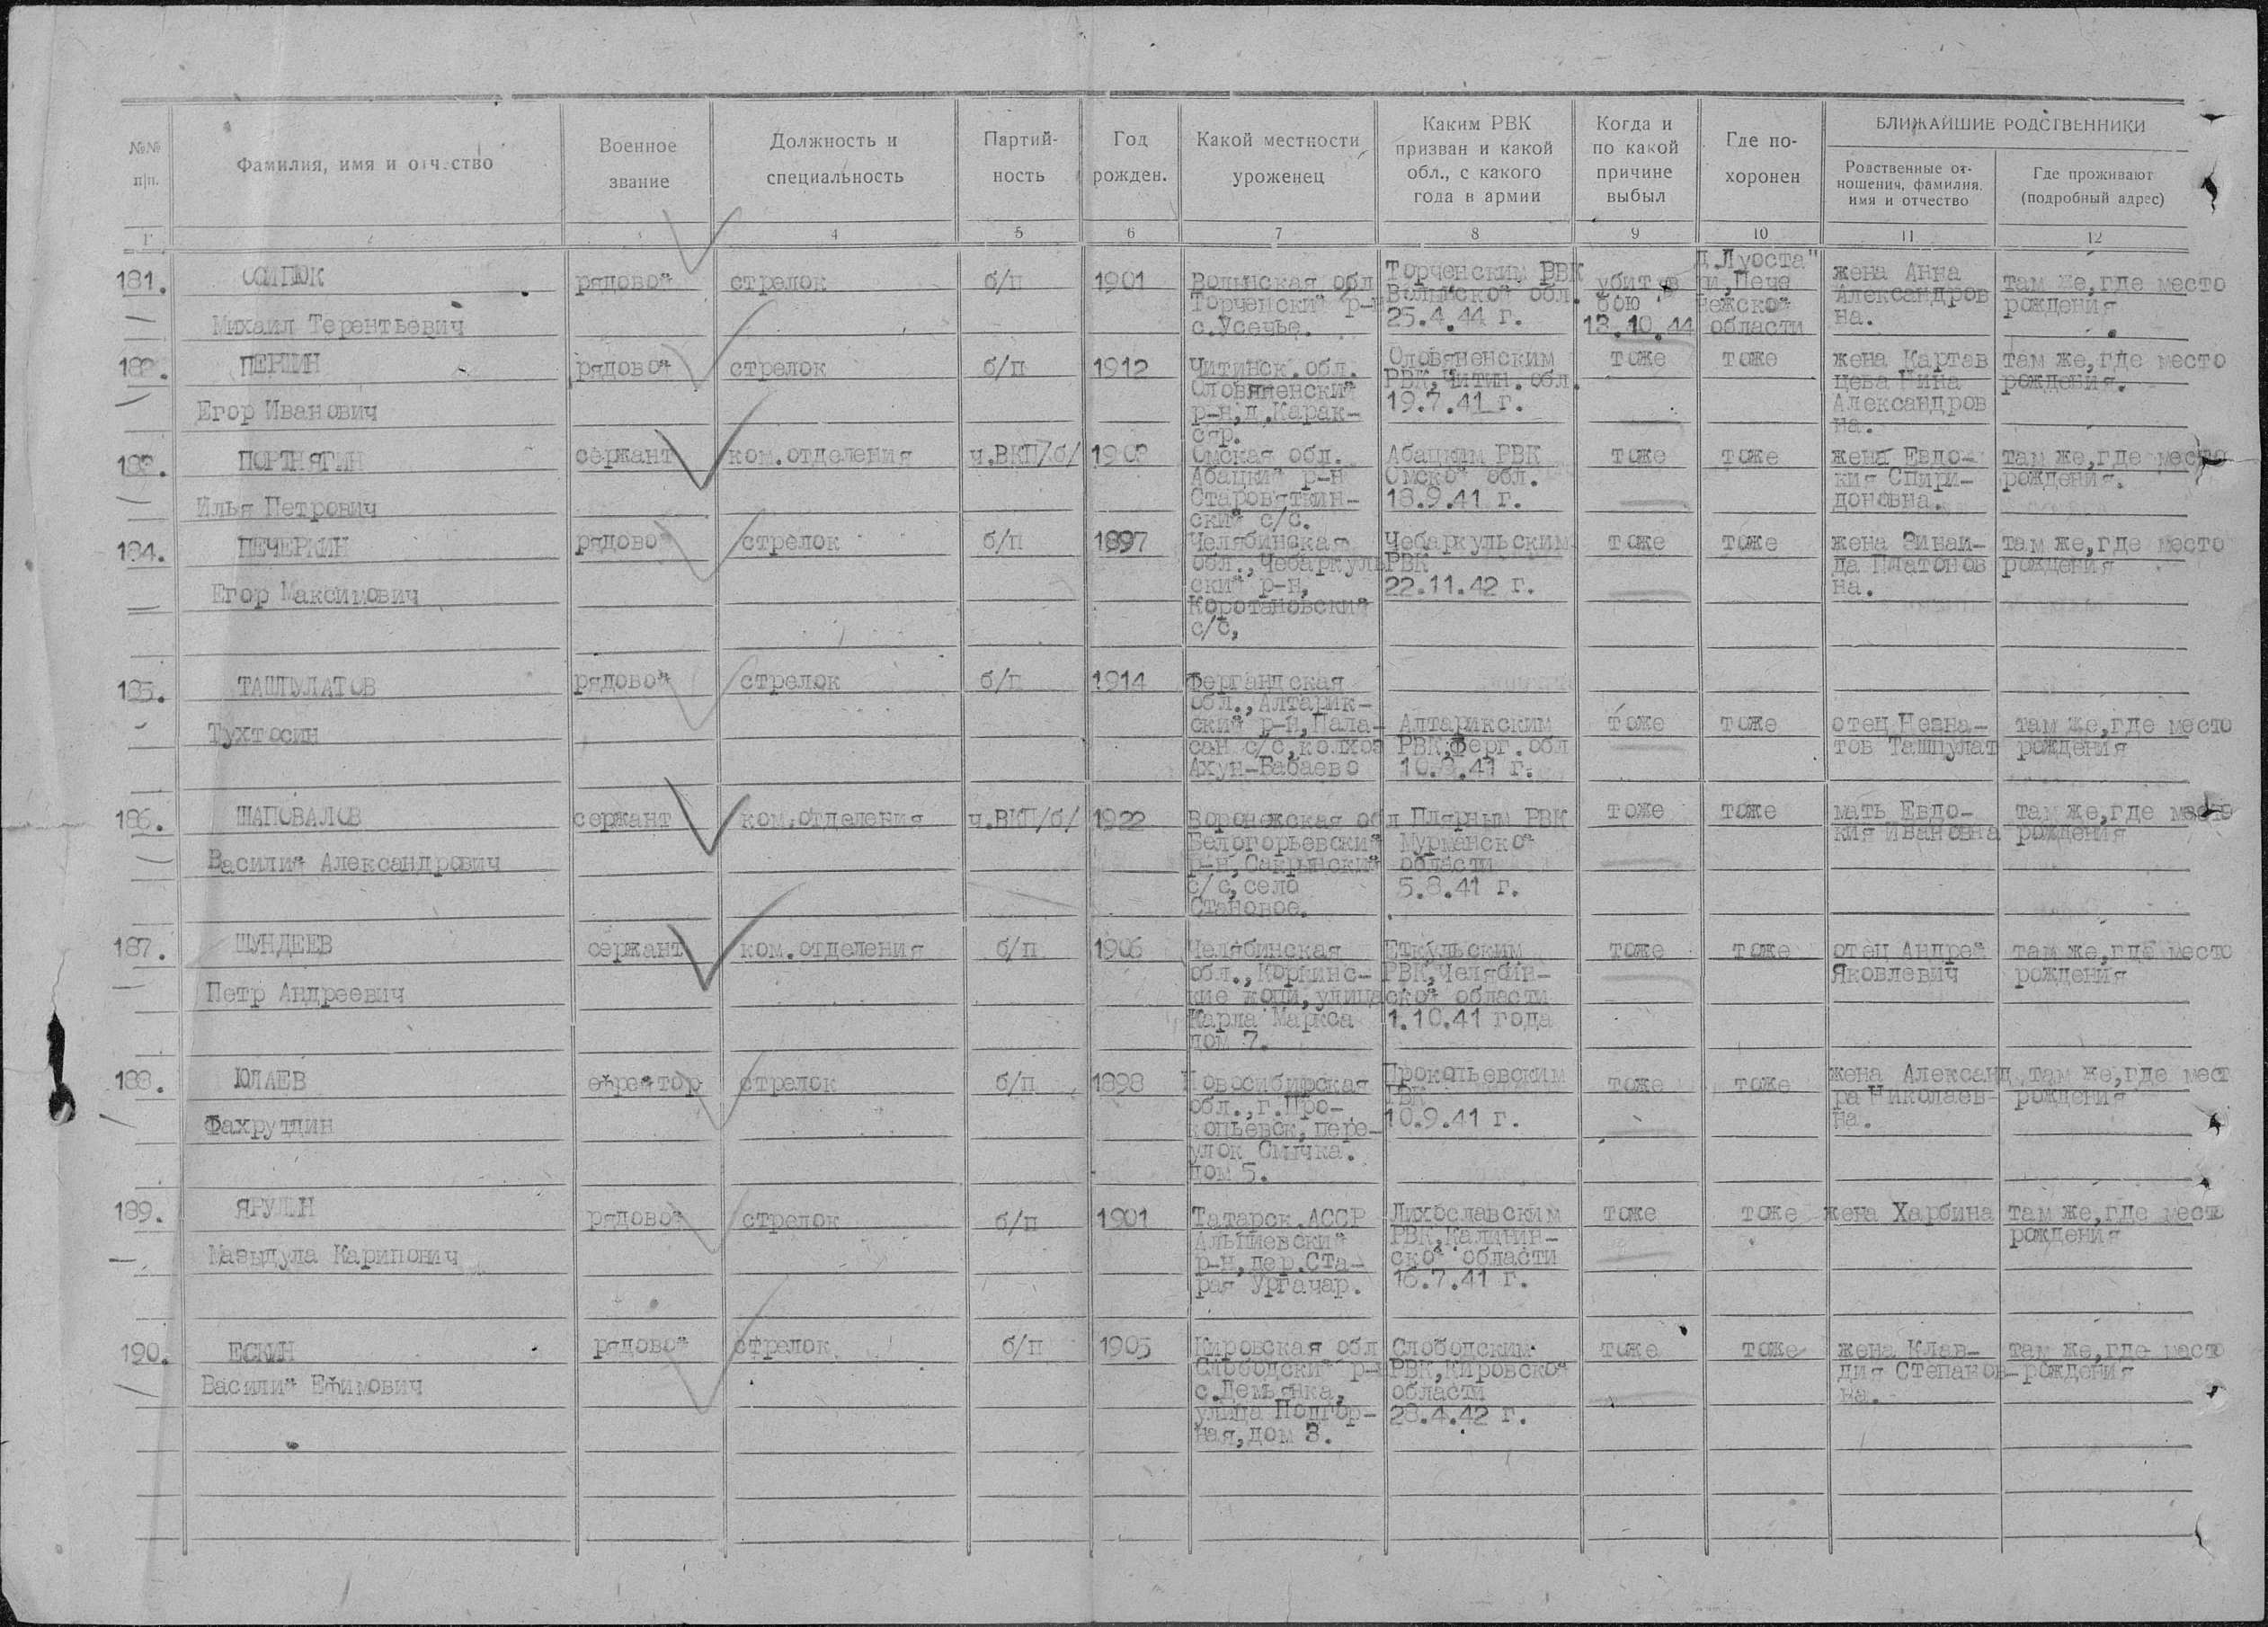 №№ п/п.
Фамилия, имя и отчество
Военное звание
Должность и специальность
Партий-ность
Год рожден.
Какой местности уроженец
Каким РВК призван и какой обл., с какого года в армии
Когда и по какой причине выбыл
Где по-хоронен
БЛИЖАЙШИЕ РОДСТВЕННИКИ
Родственные от-ношения, фамилия, имя и отчество
Где проживают (подробный адрес)
1 2 3 4 5 6 7 8 9 10 11 12
181. ОСИПЮК рядовой стрелок б/п 1901 Волынская обл Торченским РВК убит в д.Луоста жена Анна там же,где место
Михаил Терентьевич Торченский р-н Волынской обл. бою ри,Пече Александров рождения
с.Усечье. 25.4.44 г. 13.10.44 нежской области на.
182. ПЕРШИН рядовой стрелок б/п 1912 Читинск.обл. Оловяненским тоже тоже жена Картав там же,где место
Егор Иванович Оловяненский РВК,Читин.обл. цева Нина рождения.
р-н,д.Карак- 19.7.41 г. Александров
сяр. на.
183. ПОРТНЯГИН сержант ком.отделения ч.ВКП/б/ Омская обл. Абацким РВК тоже тоже жена Евдо- там же,где место
Илья Петрович Абацкий р-н Омской обл. кия Спири- рождения.
Старовяткин- 18.9.41 г. доновна.
ский с/с.
184. ПЕЧЕРКИН рядовой стрелок б/п 1897 Челябинская Чебаркульским тоже тоже жена Зинаи- там же,где место
Егор Максимович обл.,Чебаркуль РВК да Платонов рождения
ский р-н, 22.11.42 г. на.
Коротановский
с/с,
185. ТАШПУЛАТОВ рядовой стрелок б/п 1914 Ферганская
обл.,Алтарик-
Тухтосин ский р-н,Пала- Алтарикским тоже тоже отец там же,где место
сан с/с,колхоз РВК,Ферг.обл тов Ташпулат рождения
Ахун-Бабаево 10.9.41 г.
186. ШАПОВАЛОВ сержант ком.отделения ч.ВКП/б/ 1922 Воронежская обл Плярным РВК тоже тоже мать Евдо- там же,где место
Василий Александрович Белогорьевский Мурманской кия Ивановна рождения
р-н,Сакрынский области
с/с,село 5.8.41 г.
Становое.
187. ШУНДЕЕВ сержант ком.отделения б/п 1906 Челябинская Еткульским тоже тоже отец Андрей там же,где место
Петр Андреевич обл.,Коркинс- РВК,Челябин- Яковлевич рождения
кие копи,улица ской области
Карла Маркса 1.10.41 года
дом 7.
188. ЮЛАЕВ ефрейтор стрелок б/п 1898 Новосибирская Прокопьевским тоже тоже жена Александ там же,где мест
Фахрутдин обл.,г.Про- РВК ра Николаев- рождения
копьевск,пере- 10.9.41 г. на.
улок Смычка.
дом 5.
189. ЯРУЛИН рядовой стрелок б/п 1901 Татарск.АССР Лихославским тоже тоже жена Харбина там же,где место
Мазыдула Карипович Альпиевский РВК,Калинин- рождения
р-н,дер.Ста- ской области
рая Ургачар. 16.7.41 г.
190. ЕСКИН рядовой стрелок б/п 1905 Кировская обл Слободским тоже тоже жена Клав- там же,где место
Василий Ефимович Слободский р-н РВК,Кировской дия Степанов- рождения
с.Демьянка, области на.
улица Подгор- 28.4.42 г.
ная,дом 3.